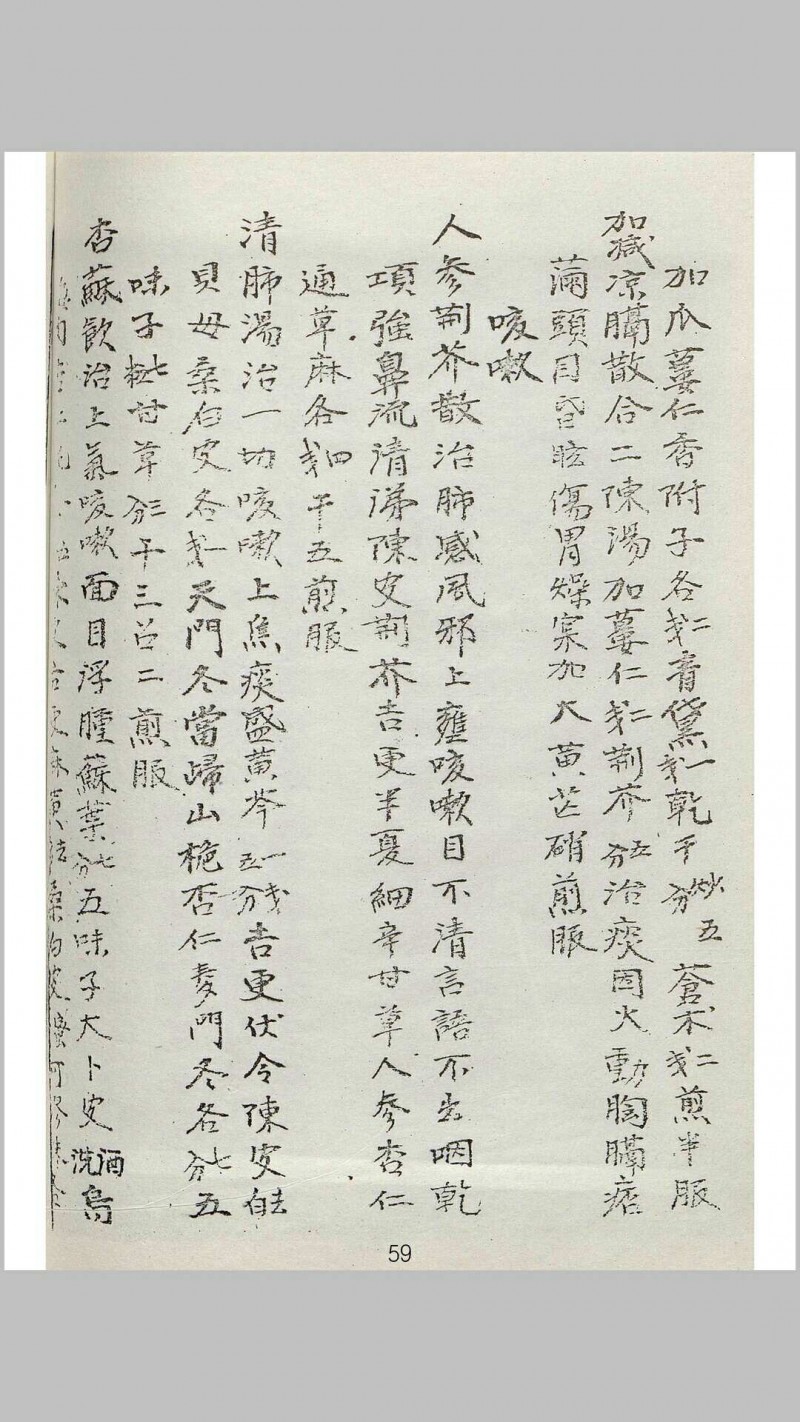 加瓜蔞仁香附子各二戔青黛一戔乾干炒五分蒼朮二戔煎半服
加减凉膈散合二陳湯加蔞仁二戔荆芥五分治痰因火動胸膈痞
滿頭目昏眩傷胃燥寀加大黄芒硝煎服
咳嗽
人參荆芥散治肺感風邪上壅咳嗽目不清言語不出咽乾
項強鼻流清涕陳皮荆芥吉更半夏細辛甘草人參杏仁
通草麻各四戔干五煎服
清肺湯治一切咳嗽上焦痰盛黄芩一戔五分吉更伏令陳皮去白
貝母桑白皮各一戔天門冬當歸山梔杏仁麥門冬各七分五
味子七粒甘草三分干三召二煎服
杏蘇飲治上氣咳嗽面目浮腫蘇葉七分五味子大卜皮酒洗烏
59